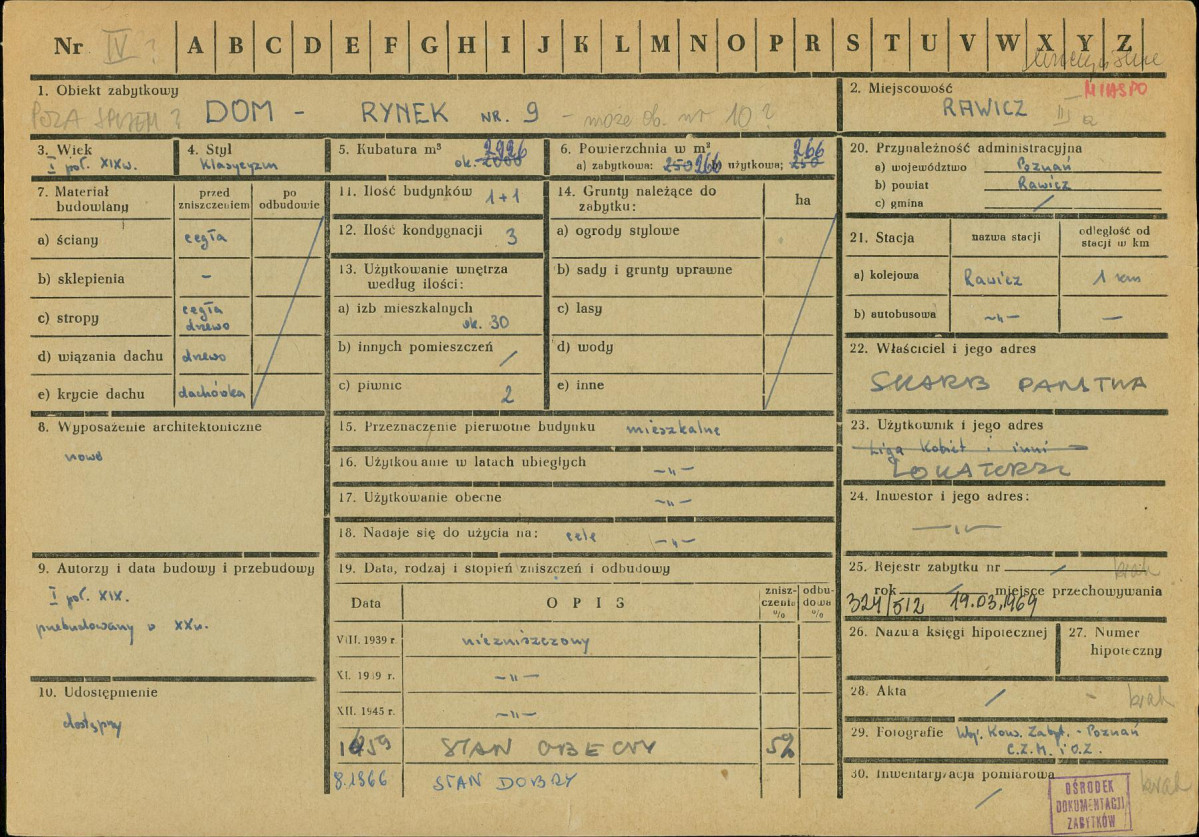 Nr IV ? A B C D E F G H I J K L M N O P R S T U V W X Y Z
1. Obiekt zabytkowy
POZA SPISEM ? DOM - RYNEK NR. 9 - może ob. nr 10 ?
2. Miejscowość
MIASTO
RAWICZ III
3. Wiek
I poł. XIX w.
4. Styl
Klasycyzm
5. Kubatura m³ 2926
ok. 2000
6. Powierzchnia w m² 266
a) zabytkowa: 250 266 b) użytkowa: 250
20. Przynależność administracyjna
a) województwo Poznań
b) powiat Rawicz
c) gmina /
7. Materiał budowlany
przed zniszczeniem
po odbudowie
a) ściany cegła
b) sklepienia -
c) stropy cegła drewo
d) wiązania dachu drewo
e) krycie dachu dachówka
11. Ilość budynków 1+1
12. Ilość kondygnacji 3
13. Użytkowanie wnętrza według ilości:
a) izb mieszkalnych ok. 30
b) innych pomieszczeń /
c) piwnic 2
14. Grunty należące do zabytku:
ha
a) ogrody stylowe
b) sady i grunty uprawne
c) lasy
d) wody
e) inne
21. Stacja
nazwa stacji
odległość od stacji w km
a) kolejowa Rawicz 1 km
b) autobusowa -„- -
22. Właściciel i jego adres
SKARB PAŃSTWA
8. Wyposażenie architektoniczne
nowe
15. Przeznaczenie pierwotne budynku mieszkalne
16. Użytkowanie w latach ubiegłych -„-
17. Użytkowanie obecne -„-
18. Nadaje się do użycia na: cele -„-
23. Użytkownik i jego adres
Liga Kobiet i inni
LOKATORZY
24. Inwestor i jego adres:
-„-
9. Autorzy i data budowy i przebudowy
I poł. XIX.
przebudowany w XXw.
19. Data, rodzaj i stopień zniszczeń i odbudowy
Data
OPIS
zniszczenie %
odbudowa %
VIII. 1939 r. niezniszczony
XI. 1939 r. -„-
XII. 1945 r. -„-
1959 STAN OBECNY 5%
8.1966 STAN DOBRY
25. Rejestr zabytku nr / brak
rok / miejsce przechowywania
324/512 19.03.1969
26. Nazwa księgi hipotecznej
27. Numer hipoteczny
10. Udostępnienie
dostępny
28. Akta / - brak
29. Fotografie Woj. Kons. Zabyt. - Poznań
C.Z.M. i O.Z.
30. Inwentaryzacja pomiarowa brak
/
OŚRODEK
DOKUMENTACJI
ZABYTKÓW